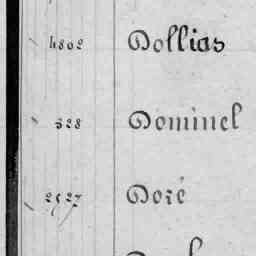 4802 Dollias
328 Dominel
2527 Doré